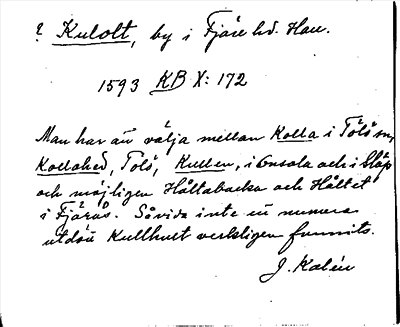 ? Kulolt, by i Fjäre hd. Han.
1593 KB X: 172
Man har att välja mellan Kolla i Tölö sn,
Kollahed, Tölö, Kullen, i Onsala och i Släp
och möjligen Håltabacka och Håltet
i Fjärås. Såvida inte en numera
utdöd Kullhult verkligen funnits.
J. Kalén